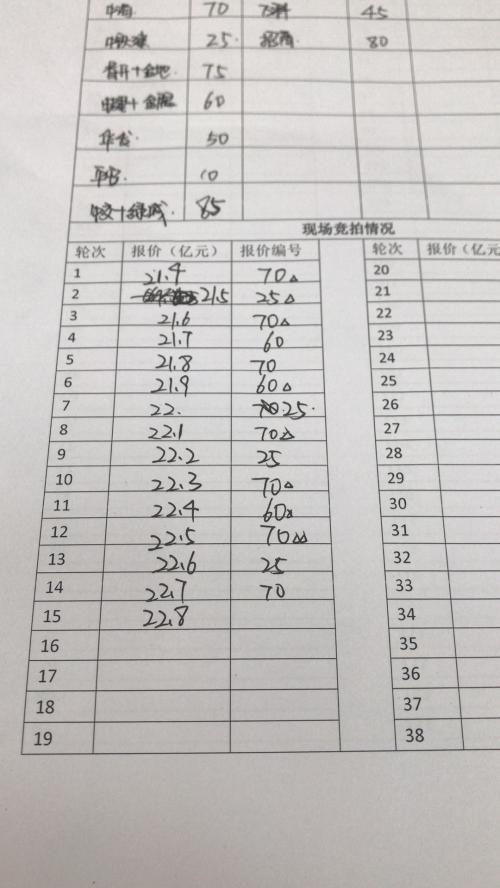 中海 70 万科 45
中铁建 25. 招商 80
首开+金地. 75
中建+金隅 60
华发. 50
平安. 10
中交+绿城. 85
现场竞拍情况
轮次 报价（亿元） 报价编号 轮次 报价（亿元）
1 21.4 70△ 20
2 21.5 25△ 21
3 21.6 70△ 22
4 21.7 60 23
5 21.8 70 24
6 21.9 60△ 25
7 22. 25. 26
8 22.1 70△ 27
9 22.2 25 28
10 22.3 70△ 29
11 22.4 60△ 30
12 22.5 70△△ 31
13 22.6 25 32
14 22.7 70 33
15 22.8 34
16 35
17 36
18 37
19 38